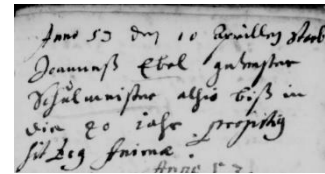 Anno 53 den 10 Aprilleß starb
Joanneß Ebel gewester
Schulmeister alhie biß in
die 20 iahr
sit Deg Animæ
Anno 53